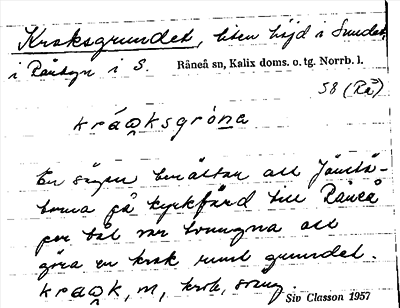 Kroksgrundet, liten höjd i Sundet
i Rårbyn i S. Råneå sn, Kalix doms. o. tg. Norrb. l.
S8 (Rå)
kráo̯ksgróna
En sägen berättar att Jämtö-
borna på kyrkfärd till Råneå
per båt var tvungna att
göra en krok runt grundet.
krao̯k, m, krok, sväng.
Siv Classon 1957